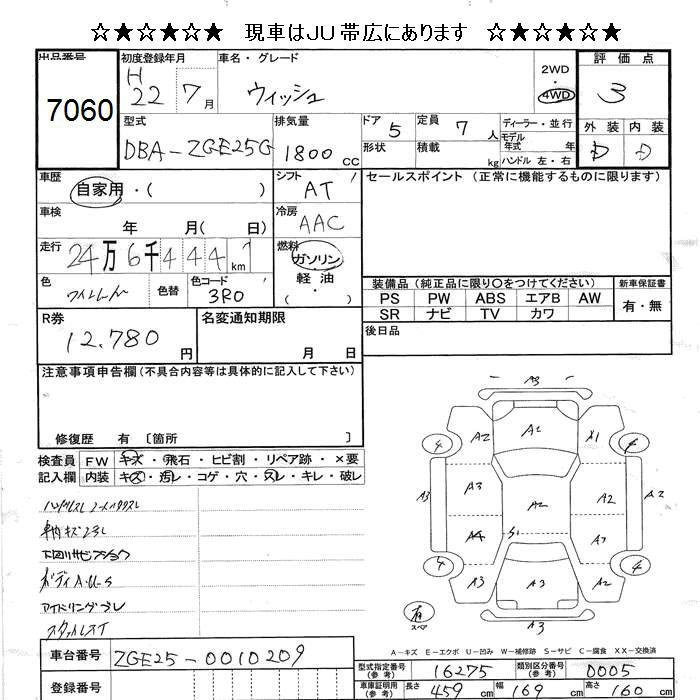 ☆★☆★☆★ 現車はJU帯広にあります ☆★☆★☆★
出品番号 初度登録年月 車名・グレード 評価点
7060 H 22 7月 ウィッシュ 2WD 4WD 3
型式 排気量 ドア 5 定員 7人 ディーラー・並行 外装 内装
DBA-ZGE25G 1800cc 形状 積載 kg モデル年式 年 D D
ハンドル 左・右
車歴 シフト セールスポイント (正常に機能するものに限ります)
自家用・( ) AT
車検 冷房
年 月( 日) AAC
走行 燃料
24万6千444km ガソリン
色 色替 色コード 軽油
ワインレッド 3R0 ・( )
装備品 (純正品に限り○をつけてください) 新車保証書
PS PW ABS エアB AW 有・無
SR ナビ TV カワ
R券 名変通知期限 後日品
12.780円 月 日
注意事項申告欄(不具合内容等は具体的に記入して下さい)
修復歴 有 [箇所 ]
検査員 FW キズ・飛石・ヒビ割・リペア跡・×要
記入欄 内装 キズ・汚レ・コゲ・穴・スレ・キレ・破レ
車内キズヨゴレ
下回りサビ
ボディA.U.S
アイドリングブレ
スタッドレスT
A3
A2 A1 X1
4
A3 A3 A2 A2 A2
A4 S1 A1
4 4
A3 A3 A2
A3
有
スペア
A-キズ E-エクボ U-凹み W-補修跡 S-サビ C-腐食 XX-交換済
車台番号 ZGE25-0010209
登録番号
型式指定番号(参考) 16275 類別区分番号(参考) 0005
車庫証明用(参考) 長さ 459cm 幅 169cm 高さ 160cm